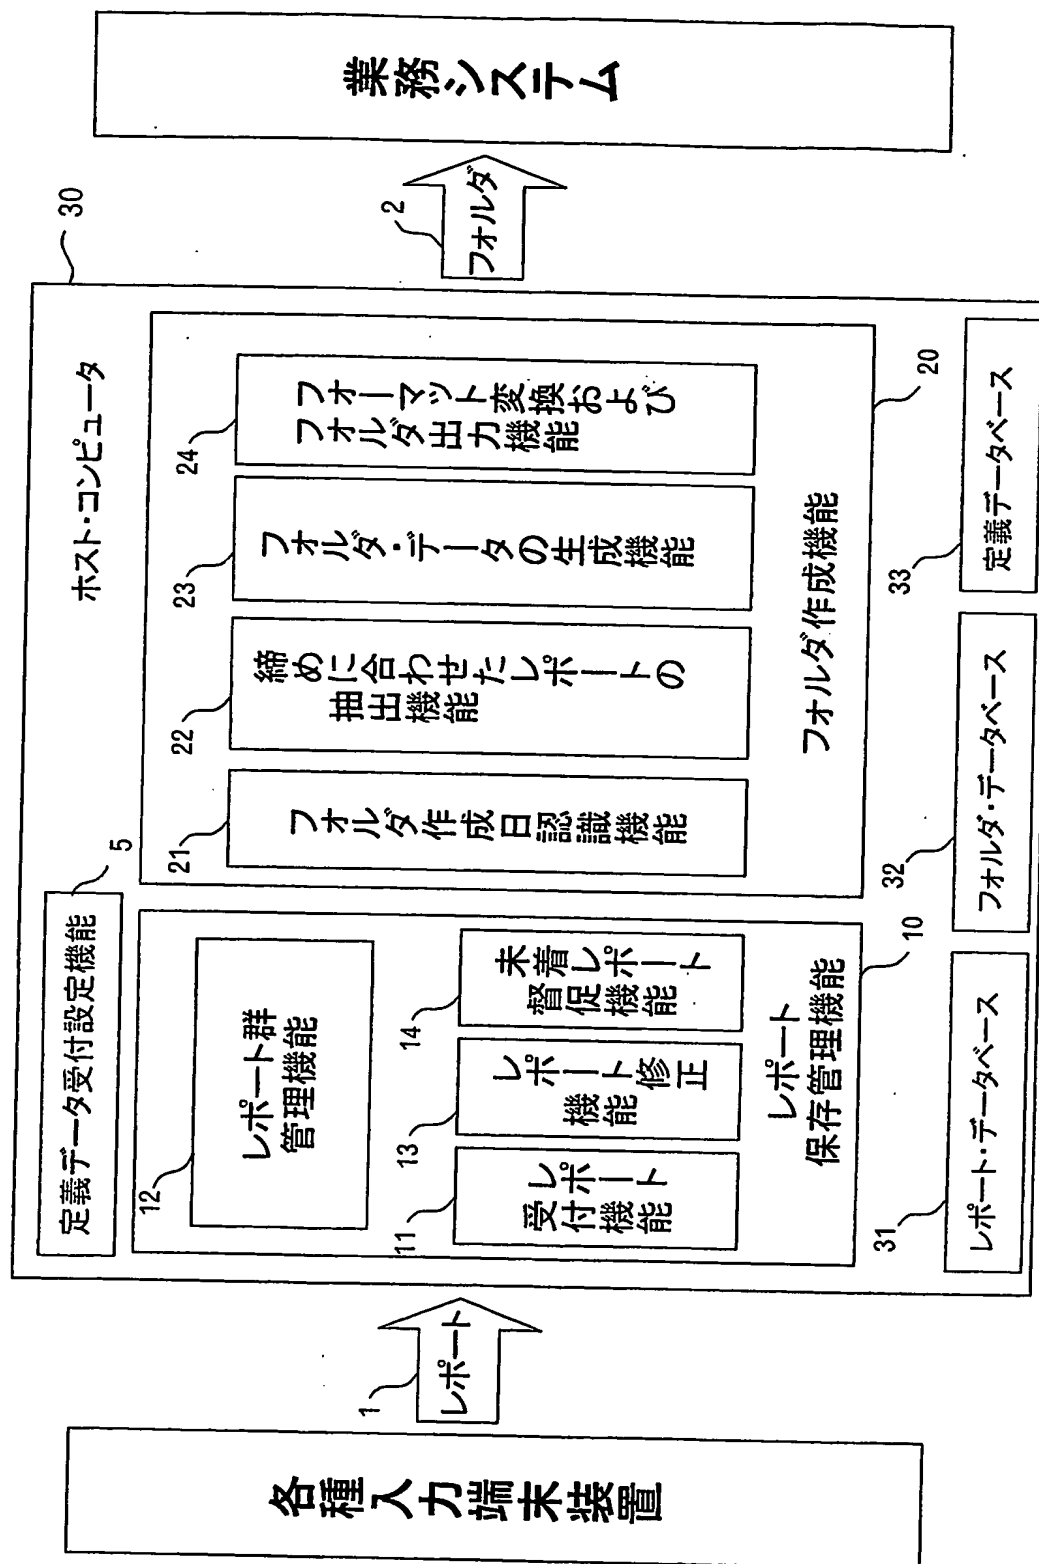 各種入力端末装置
1
レポート
ホスト・コンピュータ
30
定義データ受付設定機能
5
12
レポート群
管理機能
11
レポート
受付機能
13
レポート修正
機能
14
未着レポート
督促機能
レポート
保存管理機能
10
21
フォルダ作成日認識機能
22
締めに合わせたレポートの
抽出機能
23
フォルダ・データの生成機能
24
フォーマット変換および
フォルダ出力機能
フォルダ作成機能
20
31
レポート・データベース
32
フォルダ・データベース
33
定義データベース
2
フォルダ
業務システム